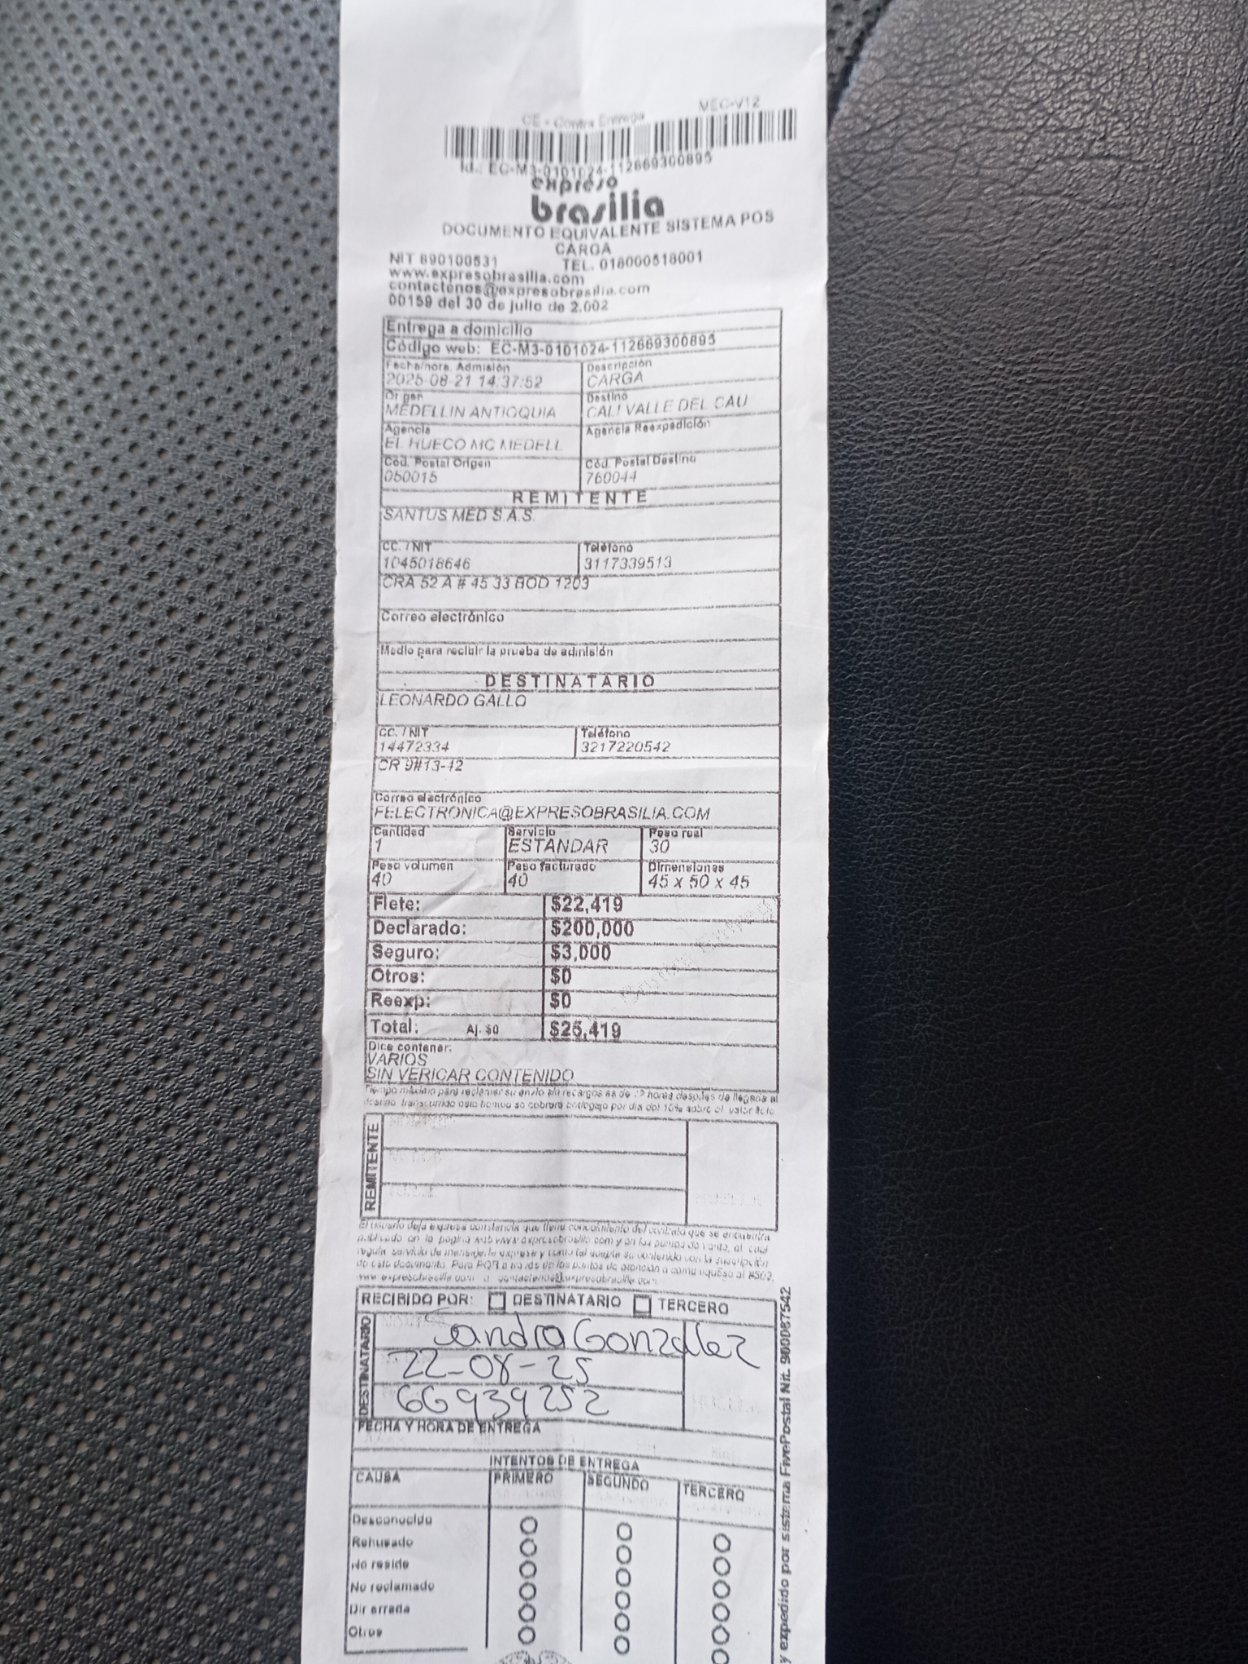 CE - Contra Entrega MEC-V12
Id.: EC-M3-0101024-112669300895
expreso
brasilia
DOCUMENTO EQUIVALENTE SISTEMA POS
CARGA
NIT 890100531 TEL. 018000518001
www.expresobrasilia.com
contactenos@expresobrasilia.com
00159 del 30 de julio de 2.002
Entrega a domicilio
Código web: EC-M3-0101024-112669300895
Fecha/hora Admisión Descripción
2025-08-21 14:37:52 CARGA
Origen Destino
MEDELLIN ANTIOQUIA CALI VALLE DEL CAU
Agencia Agencia Reexpedición
EL HUECO MC MEDELL
Cód. Postal Origen Cód. Postal Destino
050015 760044
REMITENTE
SANTUS MED S.A.S.
CC. / NIT Teléfono
1045018646 3117339513
CRA 52 A # 45 33 BOD 1203
Correo electrónico
Medio para recibir la prueba de admisión
DESTINATARIO
LEONARDO GALLO
CC. / NIT Teléfono
14472334 3217220542
CR 9#13-42
Correo electrónico
FELECTRONICA@EXPRESOBRASILIA.COM
Cantidad Servicio Peso real
1 ESTANDAR 30
Peso volumen Peso facturado Dimensiones
40 40 45 x 50 x 45
Flete: $22,419
Declarado: $200,000
Seguro: $3,000
Otros: $0
Reexp: $0
Total: Aj. $0 $25,419
Dice contener:
VARIOS
SIN VERICAR CONTENIDO
Tiempo máximo para reclamar su envío sin recargos es de 72 horas después de llegada al
destino, transcurrido este tiempo se cobrará bodegaje por día del 10% sobre el valor flete
REMITENTE
El usuario deja expresa constancia que tiene conocimiento del contrato que se encuentra
publicado en la pagina web www.expresobrasilia.com y en los puntos de venta, el cual
regula servicio de mensajería expresa y
de este documento. Para PQR a través de los puntos de atención o comuníquese al #502,
www.expresobrasilia.com o contactenos@expresobrasilia.com
RECIBIDO POR: DESTINATARIO TERCERO
DESTINATARIO
Sandra González
22-08-25
66939252
FECHA Y HORA DE ENTREGA
INTENTOS DE ENTREGA
CAUSA PRIMERO SEGUNDO TERCERO
Desconocido
Rehusado
No reside
No reclamado
Dir errada
Otros
y expedido por sistema FivePostal Nit. 900087542